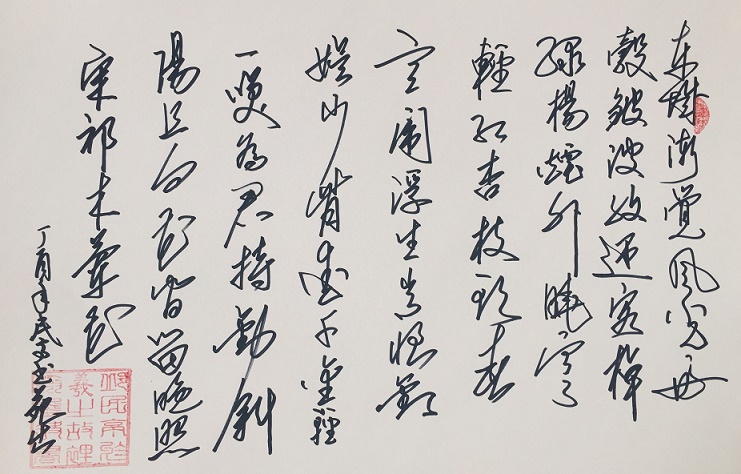 东城渐覺風光好
縠皺波紋迎客棹
綠楊煙外曉寒
輕紅杏枝頭春
意鬧浮生長恨歡
娱少肯愛千金輕
一笑為君持勸斜
陽且向花皆留晚照
宋祁木蘭花
丁酉年民文书
羲之故裡